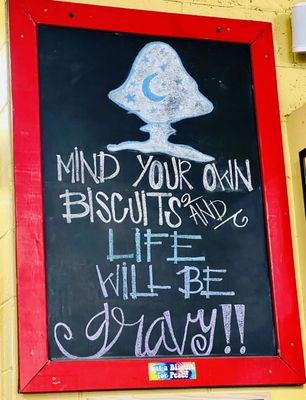 MIND YOUR OWN
BISCUITS AND
LIFE
WILL BE
gravy!!
Eat a Biscuit
for Peace